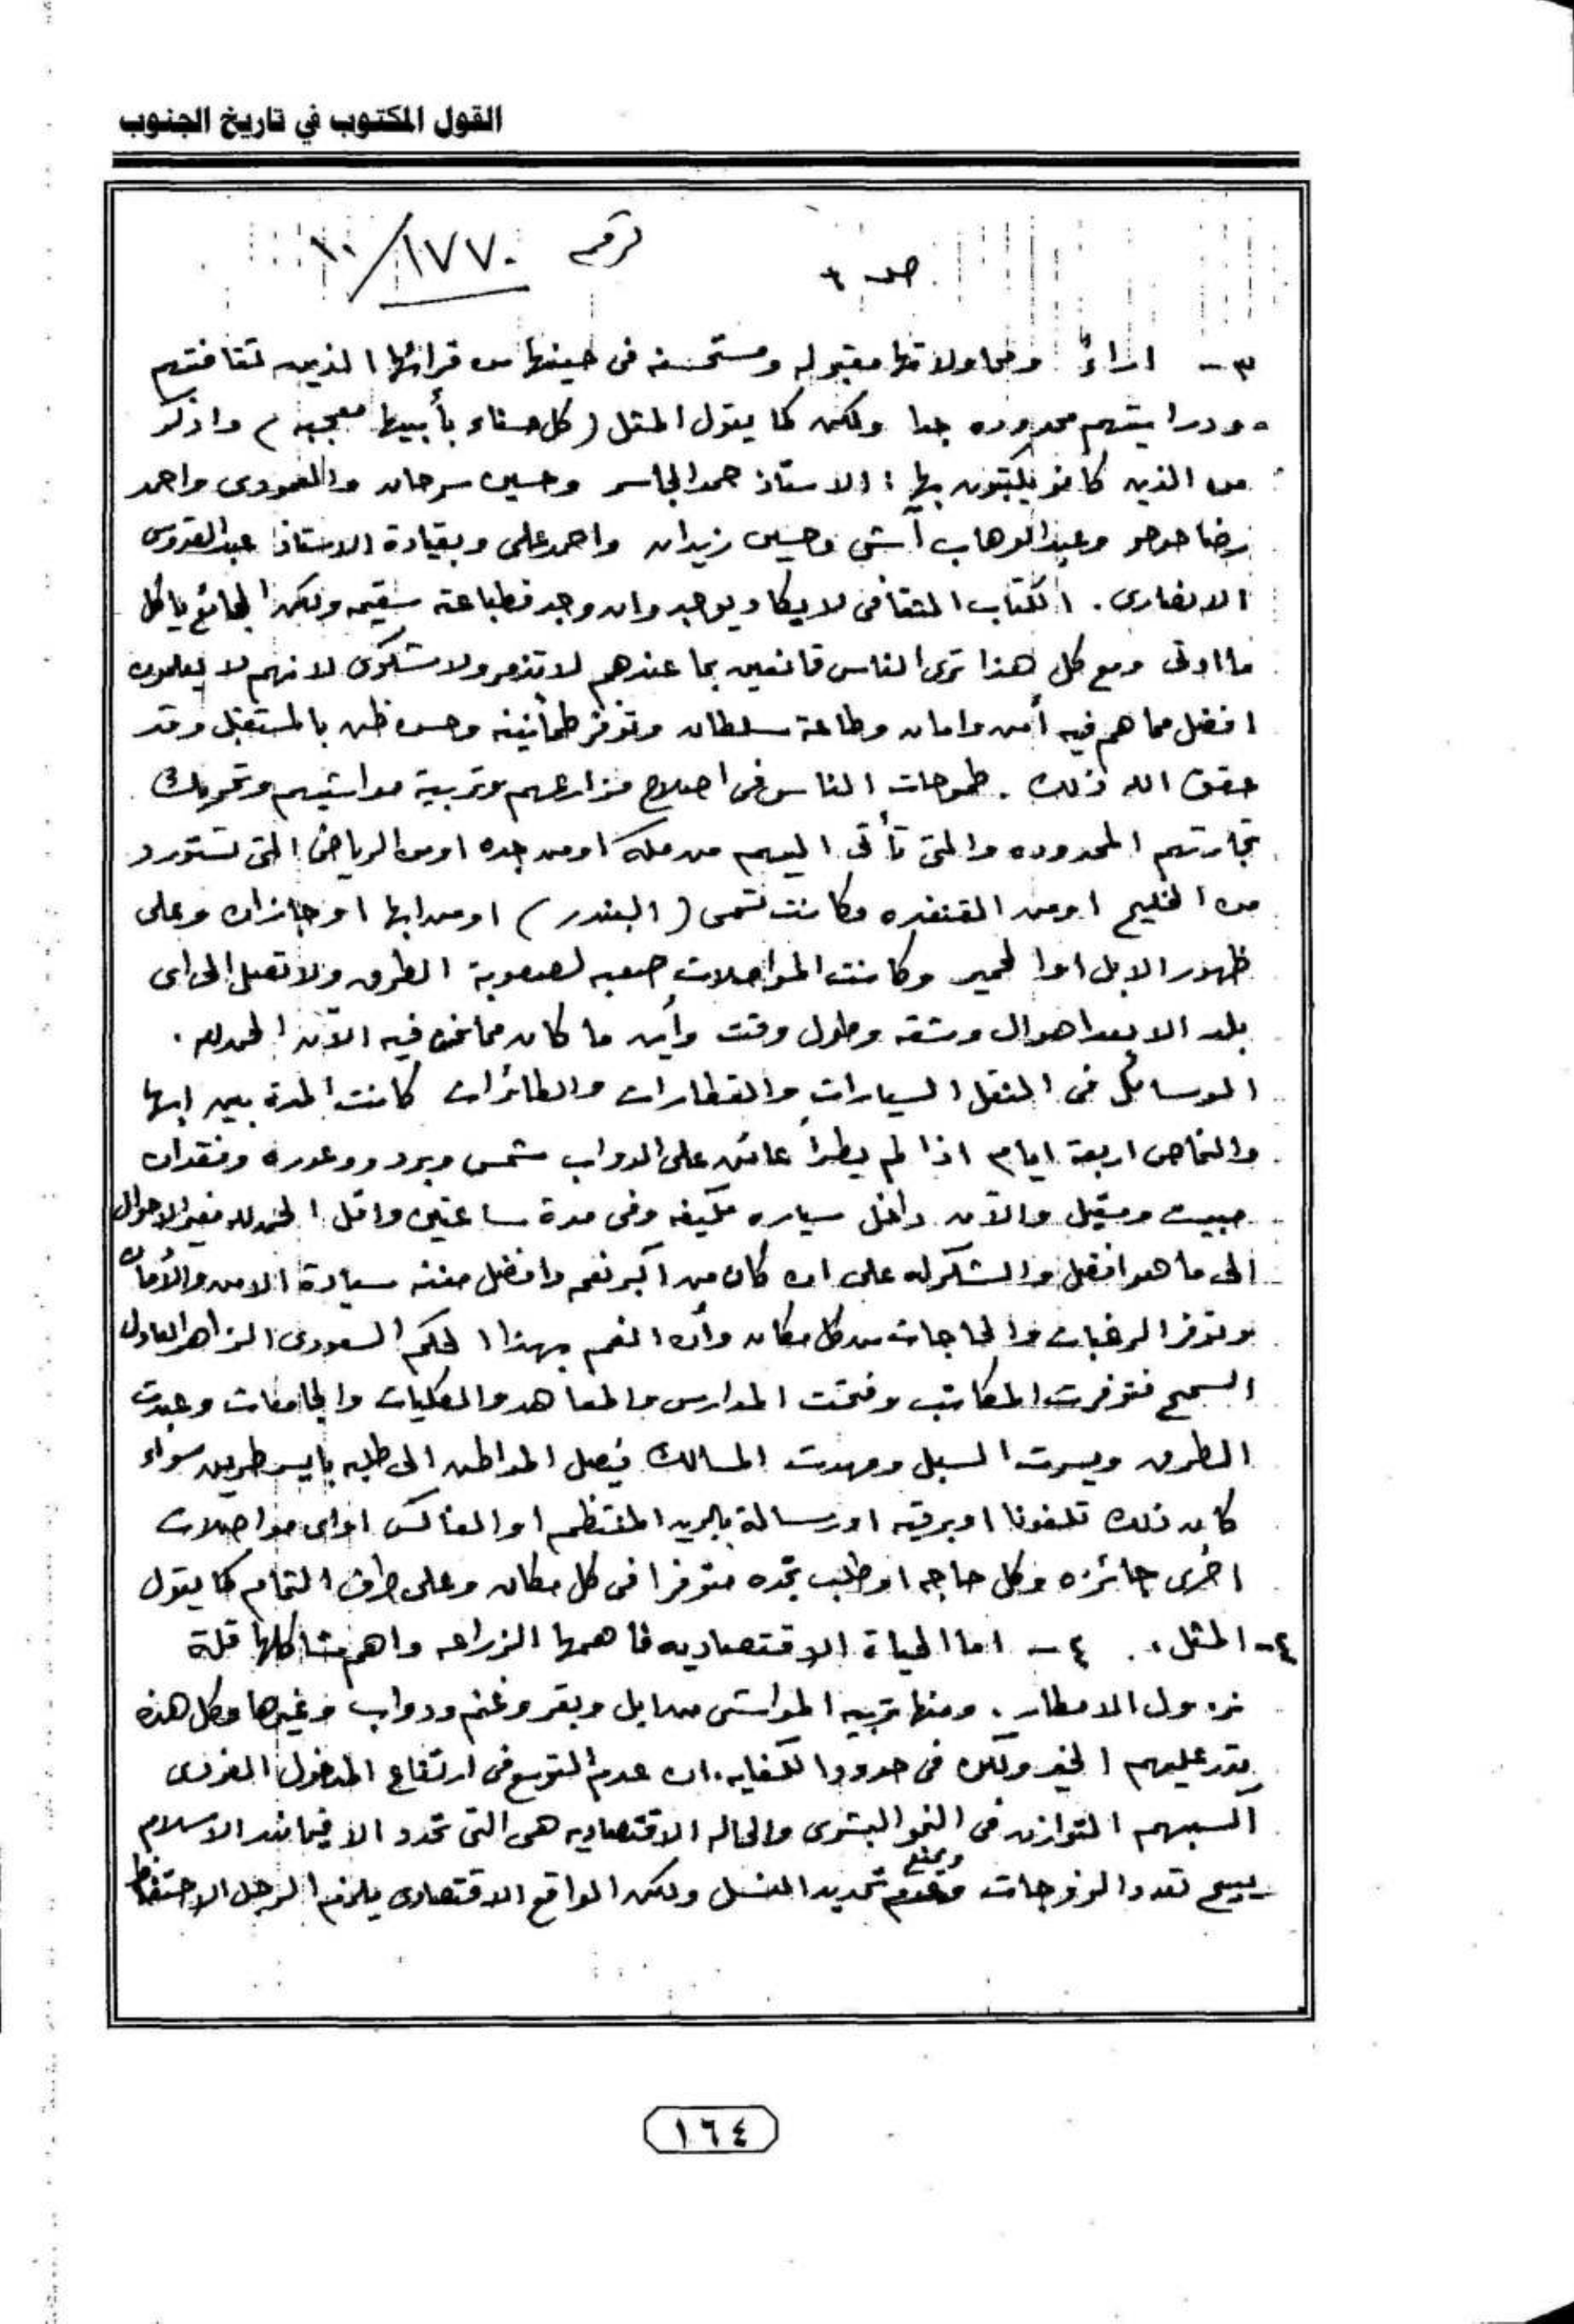 القول المكتوب في تاريخ الجنوب
صـ ٣ رقم ١٧٧٠/١٠
٣- اراء ومحاولاتها مقبوله ومستحسنه فى حينها من قرائها الذين ثقافتهم
ودرايتهم محدوده جدا ولكن كما يقول المثل (كل حسناء بأبيها معجبه) واذكر
من الذين كانو يكتبون بها : الاستاذ حمد الجاسر وحسين سرحان والعمودى واحمد
رضا حوحو وعبد الوهاب آشى وحسين زيدان واحمد على وبقيادة الاستاذ عبد القدوس
الانصارى . الكتاب الثقافى لا يكاد يوجد وان وجد فطباعته سقيمه ولكن الجائع ياكل
ما اوتى ومع كل هذا ترى الناس قانعين بما عندهم لا تذمر ولا شكوى لانهم لا يعلمون
افضل مما هم فيه أمن وامان وطاعة سلطان وتوفر طمأنينه وحسن ظن بالمستقبل وقد
حقق الله ذلك . طموحات الناس فى اصلاح مزارعهم وتربية مواشيهم وتحريك
تجارتهم المحدوده والتى تأتى اليهم من مكه او من جده او من الرياض التى تستورد
من الخليج او من القنفذه وكانت تسمى (البندر) او من ابها او جازان وعلى
ظهور الابل او الحمير وكانت المواصلات صعبه لصعوبة الطرق ولا تصل الى اى
بلد الا بعد اهوال ومشقه وطول وقت وأين ما كان مما نحن فيه الآن الحمد لله .
الوسائل فى التنقل السيارات والقطارات والطائرات كانت المدة بين ابها
والنماص اربعة ايام اذا لم يطرأ عائق على الدواب شمس وبرد ووعوره وفقدان
مبيت ومقيل والآن داخل سياره مكيفه وفى مدة ساعتين واقل الحمد لله مغير الاحوال
الى ما هو افضل والشكر له على ان كان من اكبر نعم وافضل منته سيادة الامن والأمان
وتوفر الرغبات والحاجات من كل مكان وأن النعم بهذا الحكم السعودى الزاهر العادل
السمح فتوفرت المكاتب وفتحت المدارس والمعاهد والكليات والجامعات وعبدت
الطرق ويسرت السبل ومهدت المسالك فيصل المواطن الى طلبه بايسر طريق سواء
كان ذلك تلفونا او برقيه او رسالة بالبريد المنتظم او الفاكس او اى مواصلات
اخرى جائزه وكل حاجه او طلب تجده متوفرا فى كل مكان وعلى طرف الثمام كما يقول
٤- المثل . ٤- اما الحياة الاقتصاديه فاهمها الزراعه واهم مشاكلها قلة
نزول الامطار . ومنها تربيه المواشى من ابل وبقر وغنم ودواب وغيرها وكل هذه
يدر عليهم الخير ولكن فى حدود الكفايه . ان عدم التوسع فى ارتفاع المدخول الفردى
التوازن فى النمو البشرى والحاله الاقتصاديه هى التى تحدد الا فيما الاسلام
يبيح تعدد الزوجات ويمنع تحديد النسل ولكن الواقع الاقتصادى يلزم الرجل الاحتفاظ
١٦٤